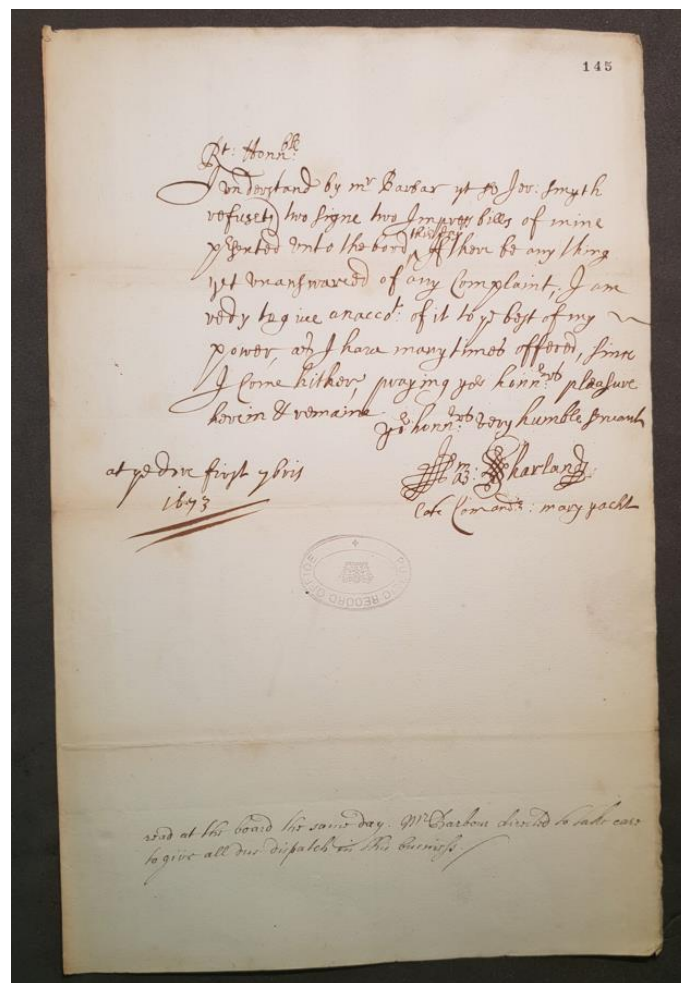 145
Rt: Honnble:
I vnderstand by mr Barbar yt Sr Jer: Smyth
refuseth two signe two Impress bills of mine
p'sented vnto the bord this day If there be any thing
yet vnanswared of any Complaint, I am
redy to give an accot: of it to ye best of my
power, as I have many times offered, since
I Come hither, praying yor honnrs pleasure
herein & remaine
yor honnrs: very humble servant
at ye dore first 7bris
1673
Wm: Sharland
late Comandr: mary yacht
PUBLIC RECORD OFFICE
read at the board the same day. Mr Barbour directed to take care
to give all due dispatch in this business.